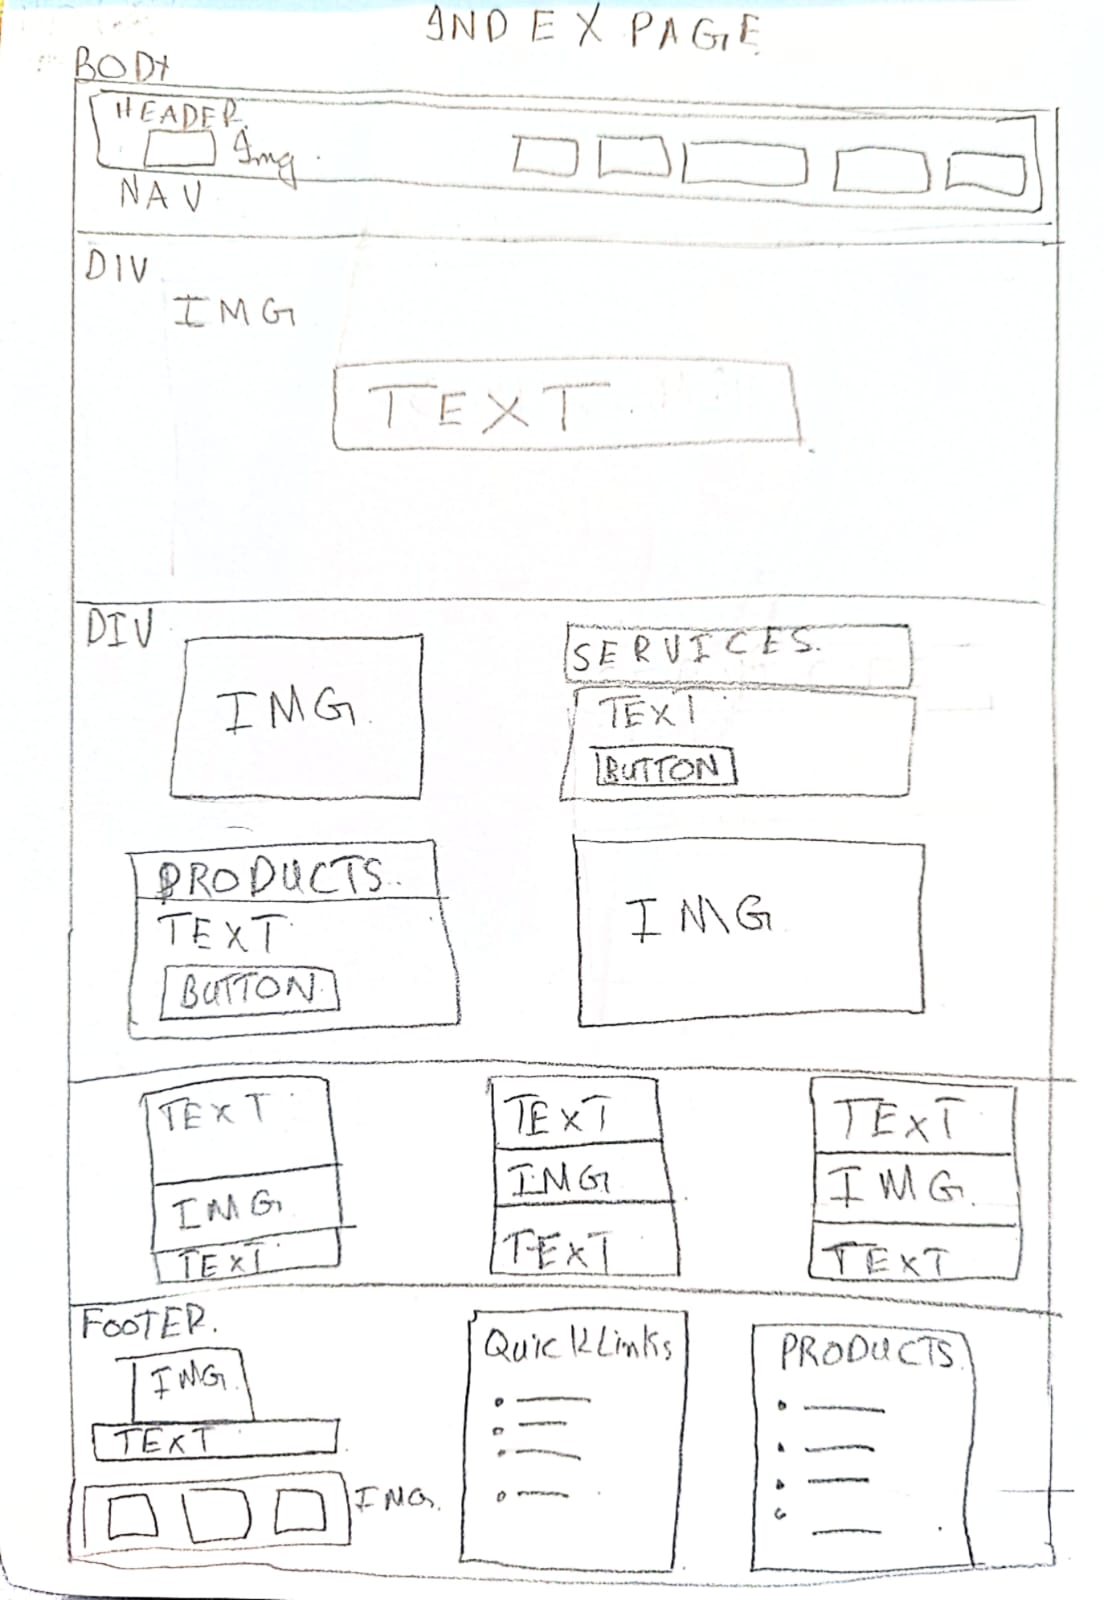 INDEX PAGE
BODY
HEADER.
Img.
NAV
DIV
IMG
TEXT.
DIV
IMG.
SERVICES.
TEXT
BUTTON
PRODUCTS.
TEXT
BUTTON
IMG
TEXT
IMG
TEXT
TEXT
IMG
TEXT
TEXT
IMG.
TEXT
FOOTER.
IMG.
TEXT
IMG.
Quick Links
PRODUCTS